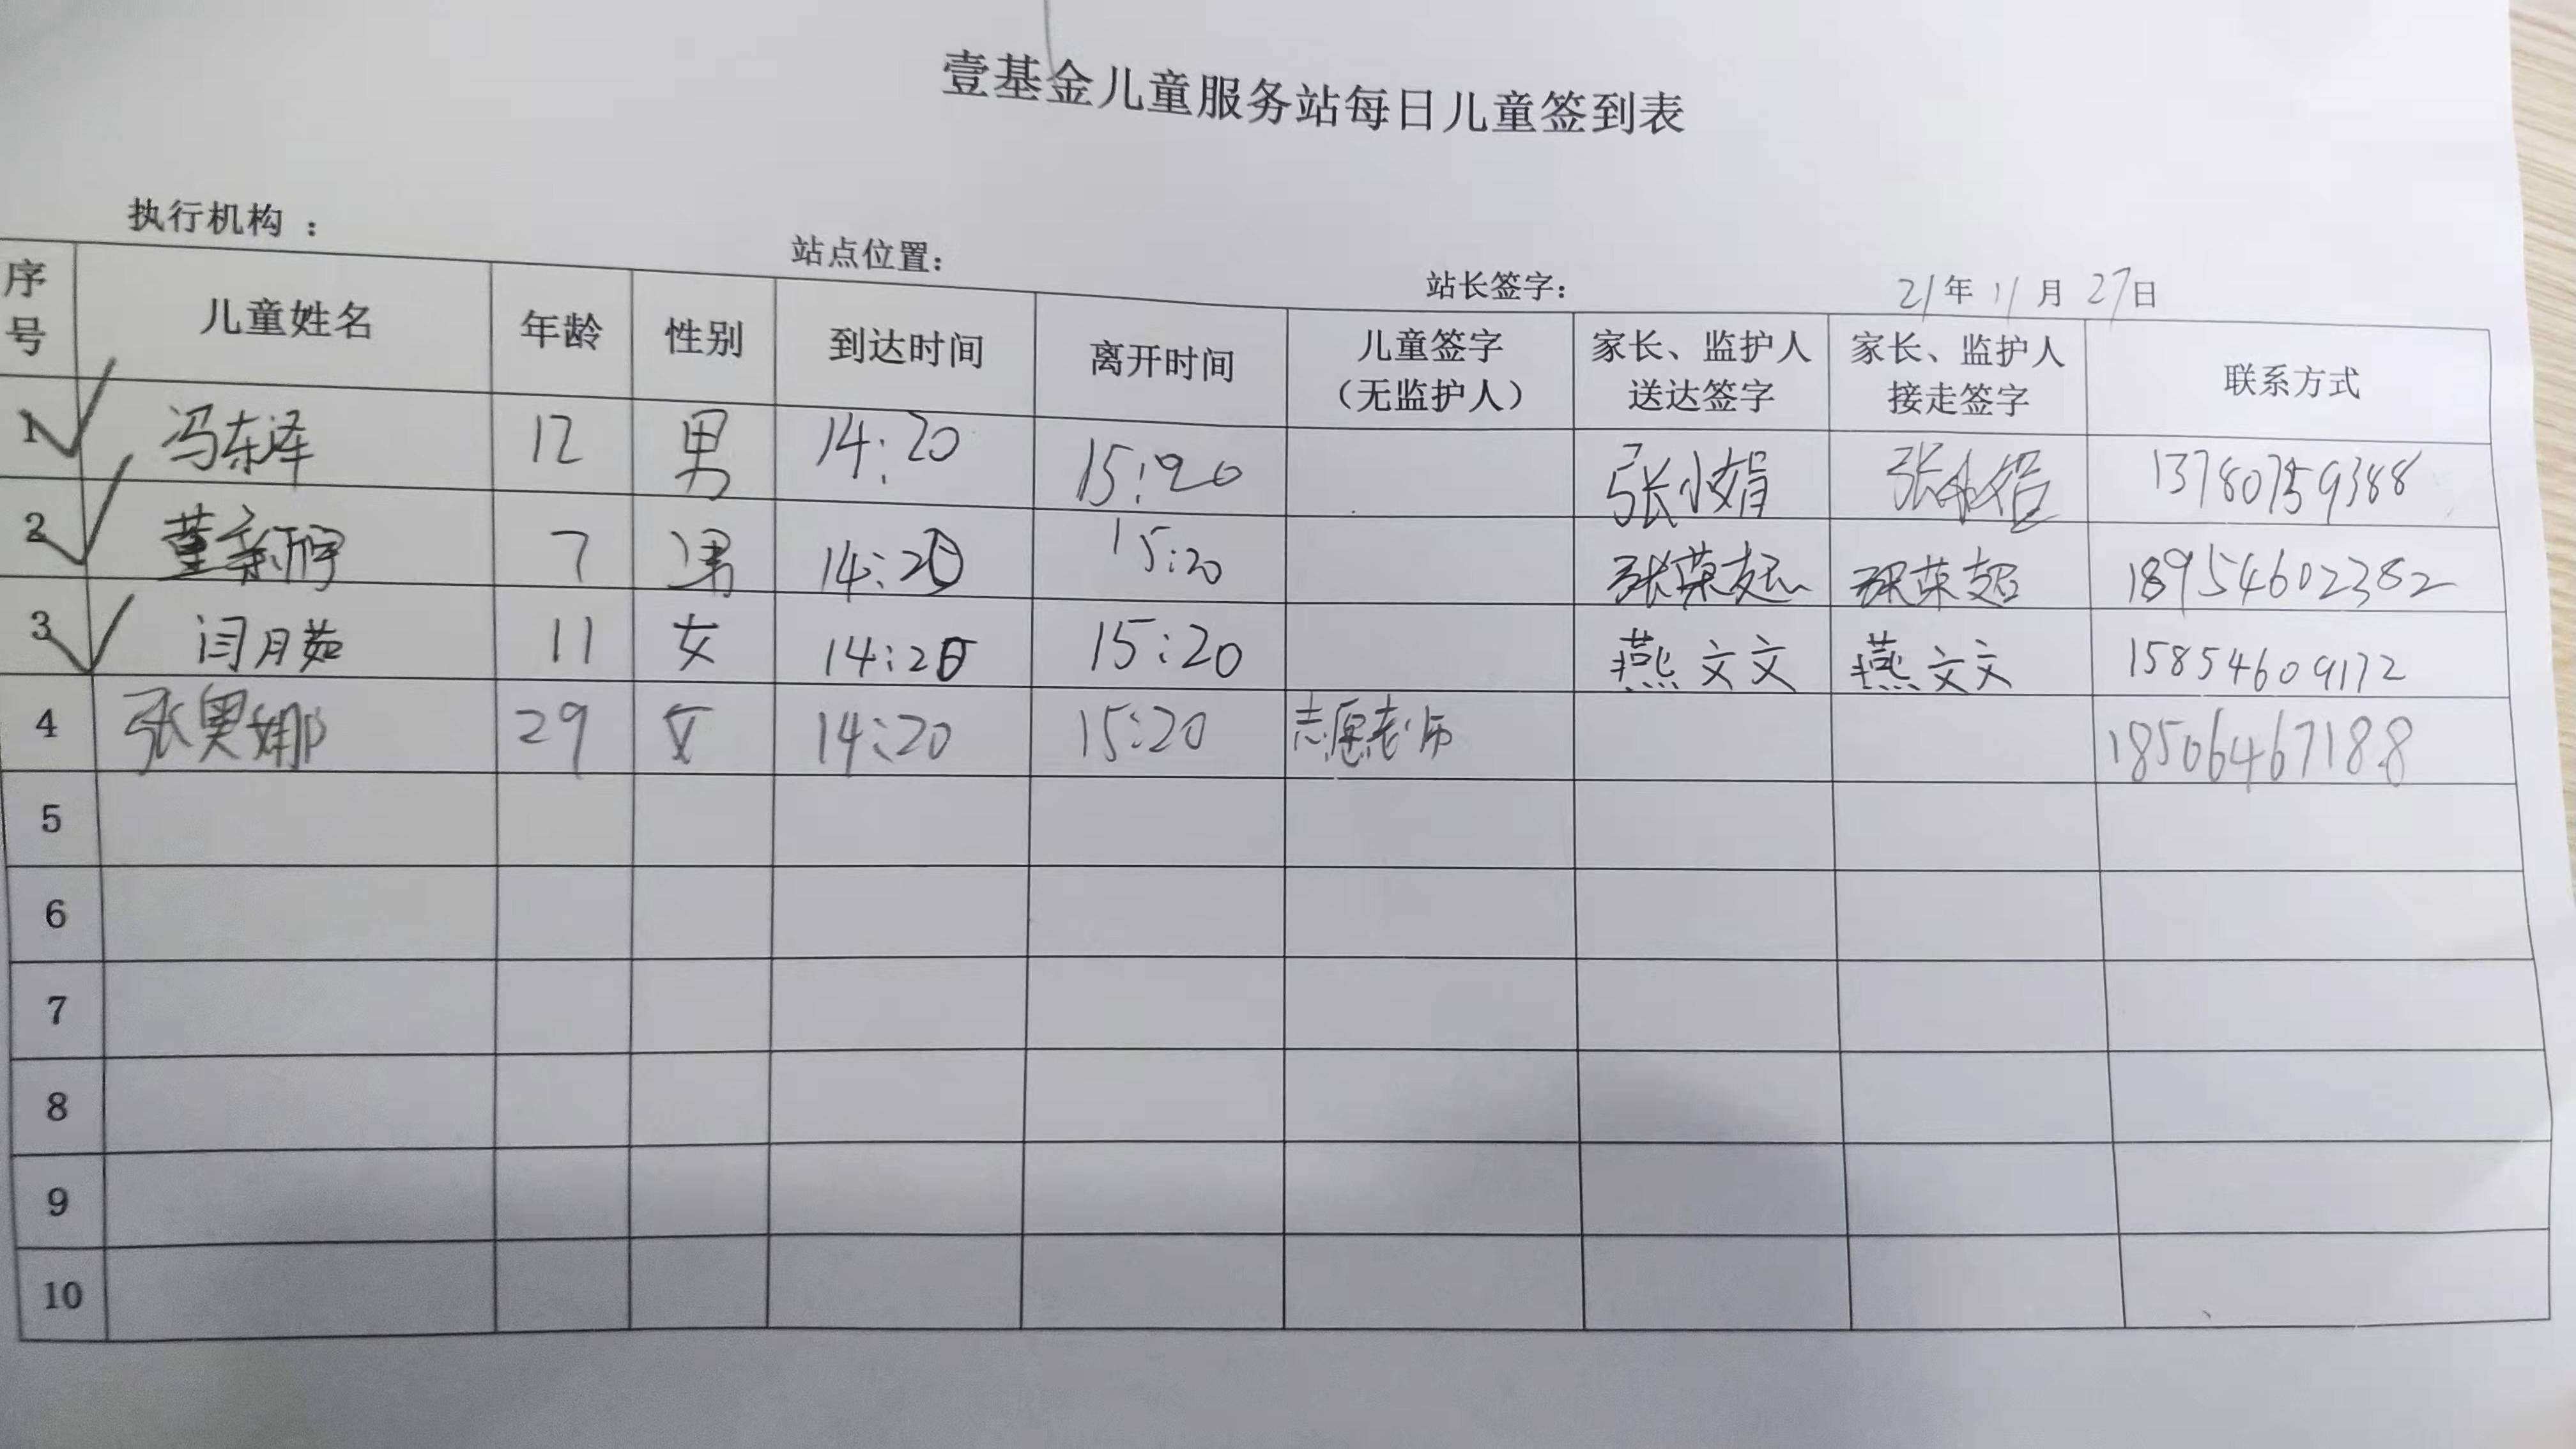 壹基金儿童服务站每日儿童签到表
执行机构 : 站点位置: 站长签字: 21年 11月 27日
序号 儿童姓名 年龄 性别 到达时间 离开时间 儿童签字（无监护人） 家长、监护人送达签字 家长、监护人接走签字 联系方式
1 冯东泽 12 男 14:20 15:20 张小娟 张小娟 13780759388
2 董 7 男 14:20 15:20 张荣超 张荣超 18954602382
3 闫月茹 11 女 14:20 15:20 燕文文 燕文文 15854609172
4 张奥娜 29 女 14:20 15:20 志愿老师 18506467188
5
6
7
8
9
10